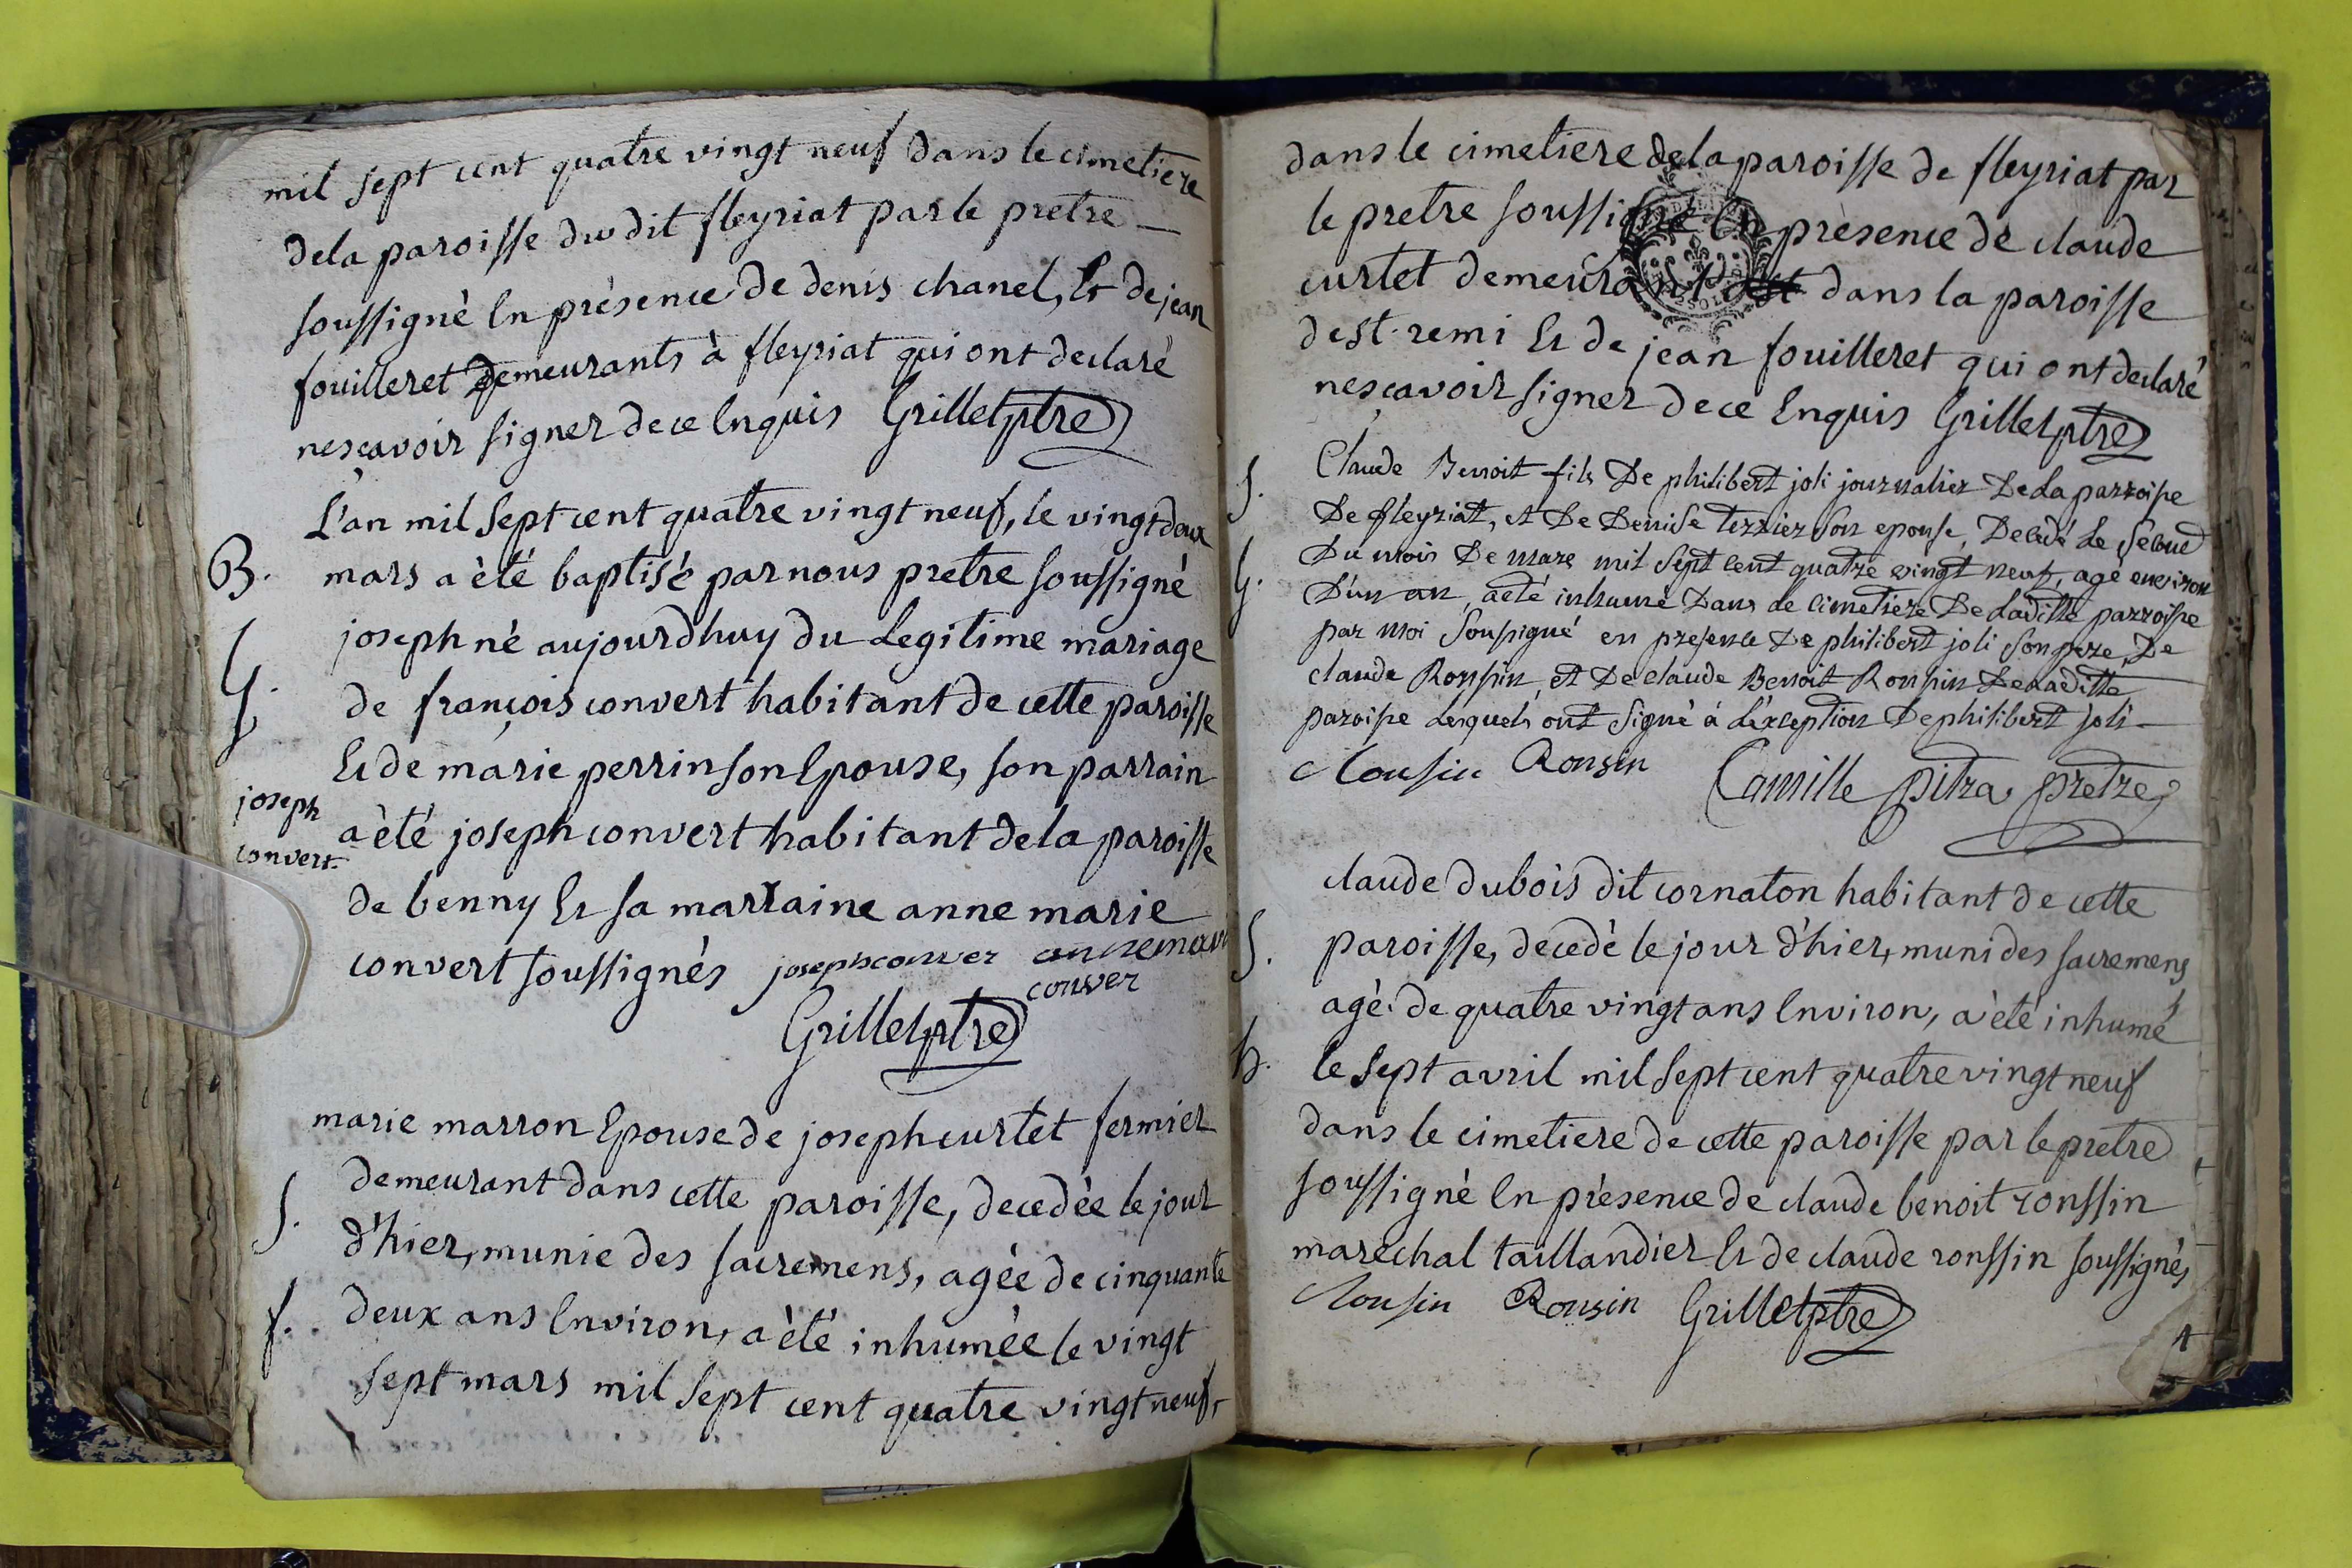 mil sept cent quatre vingt neuf dans le cimetiere
dela paroisse du dit fleyriat par le pretre
soussigné En présence de denis chanel, Et de jean
fouilleret demeurants à fleyriat qui ont declaré
nesçavoir signer de ce Enquis Grillet ptre
B.
L'an mil sept cent quatre vingt neuf, le vingt deux
mars a été baptisé par nous pretre soussigné
joseph né aujourdhuy du Legitime mariage
G.
de françois convert habitant de cette paroisse
Et de marie perrin son Epouse, son parrain
joseph
convert.
a été joseph convert habitant dela paroisse
de benny Et sa marraine anne marie
convert soussignés joseph conver anne mari
conver
Grillet ptre
marie marron Epouse de joseph curtet fermier
S.
demeurant dans cette paroisse, decedée le jour
d'hier, munie des sacremens, agée de cinquante
f.
deux ans Environ, a été inhumée le vingt
sept mars mil sept cent quatre vingt neuf,
dans le cimetiere dela paroisse de fleyriat par
le pretre soussigné En présence de claude
curtet demeurant dans la paroisse
de st. remi Et de jean fouilleret qui ont declaré
nesçavoir signer de ce Enquis Grillet ptre
S.
Claude Benoit fils De philibert joli journalier De La parroisse
De fleyriat, et De Denise terrier son epouse, Decedé Le second
G.
Du mois De mars mil sept cent quatre vingt neuf, agé environ
D'un an, a été inhumé Dans le cimetiere De Laditte parroisse
par moi soussigné en presence De philibert joli son pere, De
claude Ronssin, et De claude Benoit Ronssin De Laditte
paroisse Lesquels ont signé à L'exception De philibert joli
Ronsin Ronsin Camille pitra pretre
claude dubois dit cornaton habitant de cette
S.
paroisse, decedé le jour d'hier, muni des sacremens
agé de quatre vingt ans Environ, a été inhumé
h.
le sept avril mil sept cent quatre vingt neuf
dans le cimetiere de cette paroisse par le pretre
soussigné En présence de claude benoit ronssin
marechal taillandier Et de claude ronssin soussignés
Ronsin Ronsin Grillet ptre